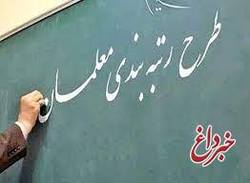 طرح رتبه بندی معلمان
خبرداغ